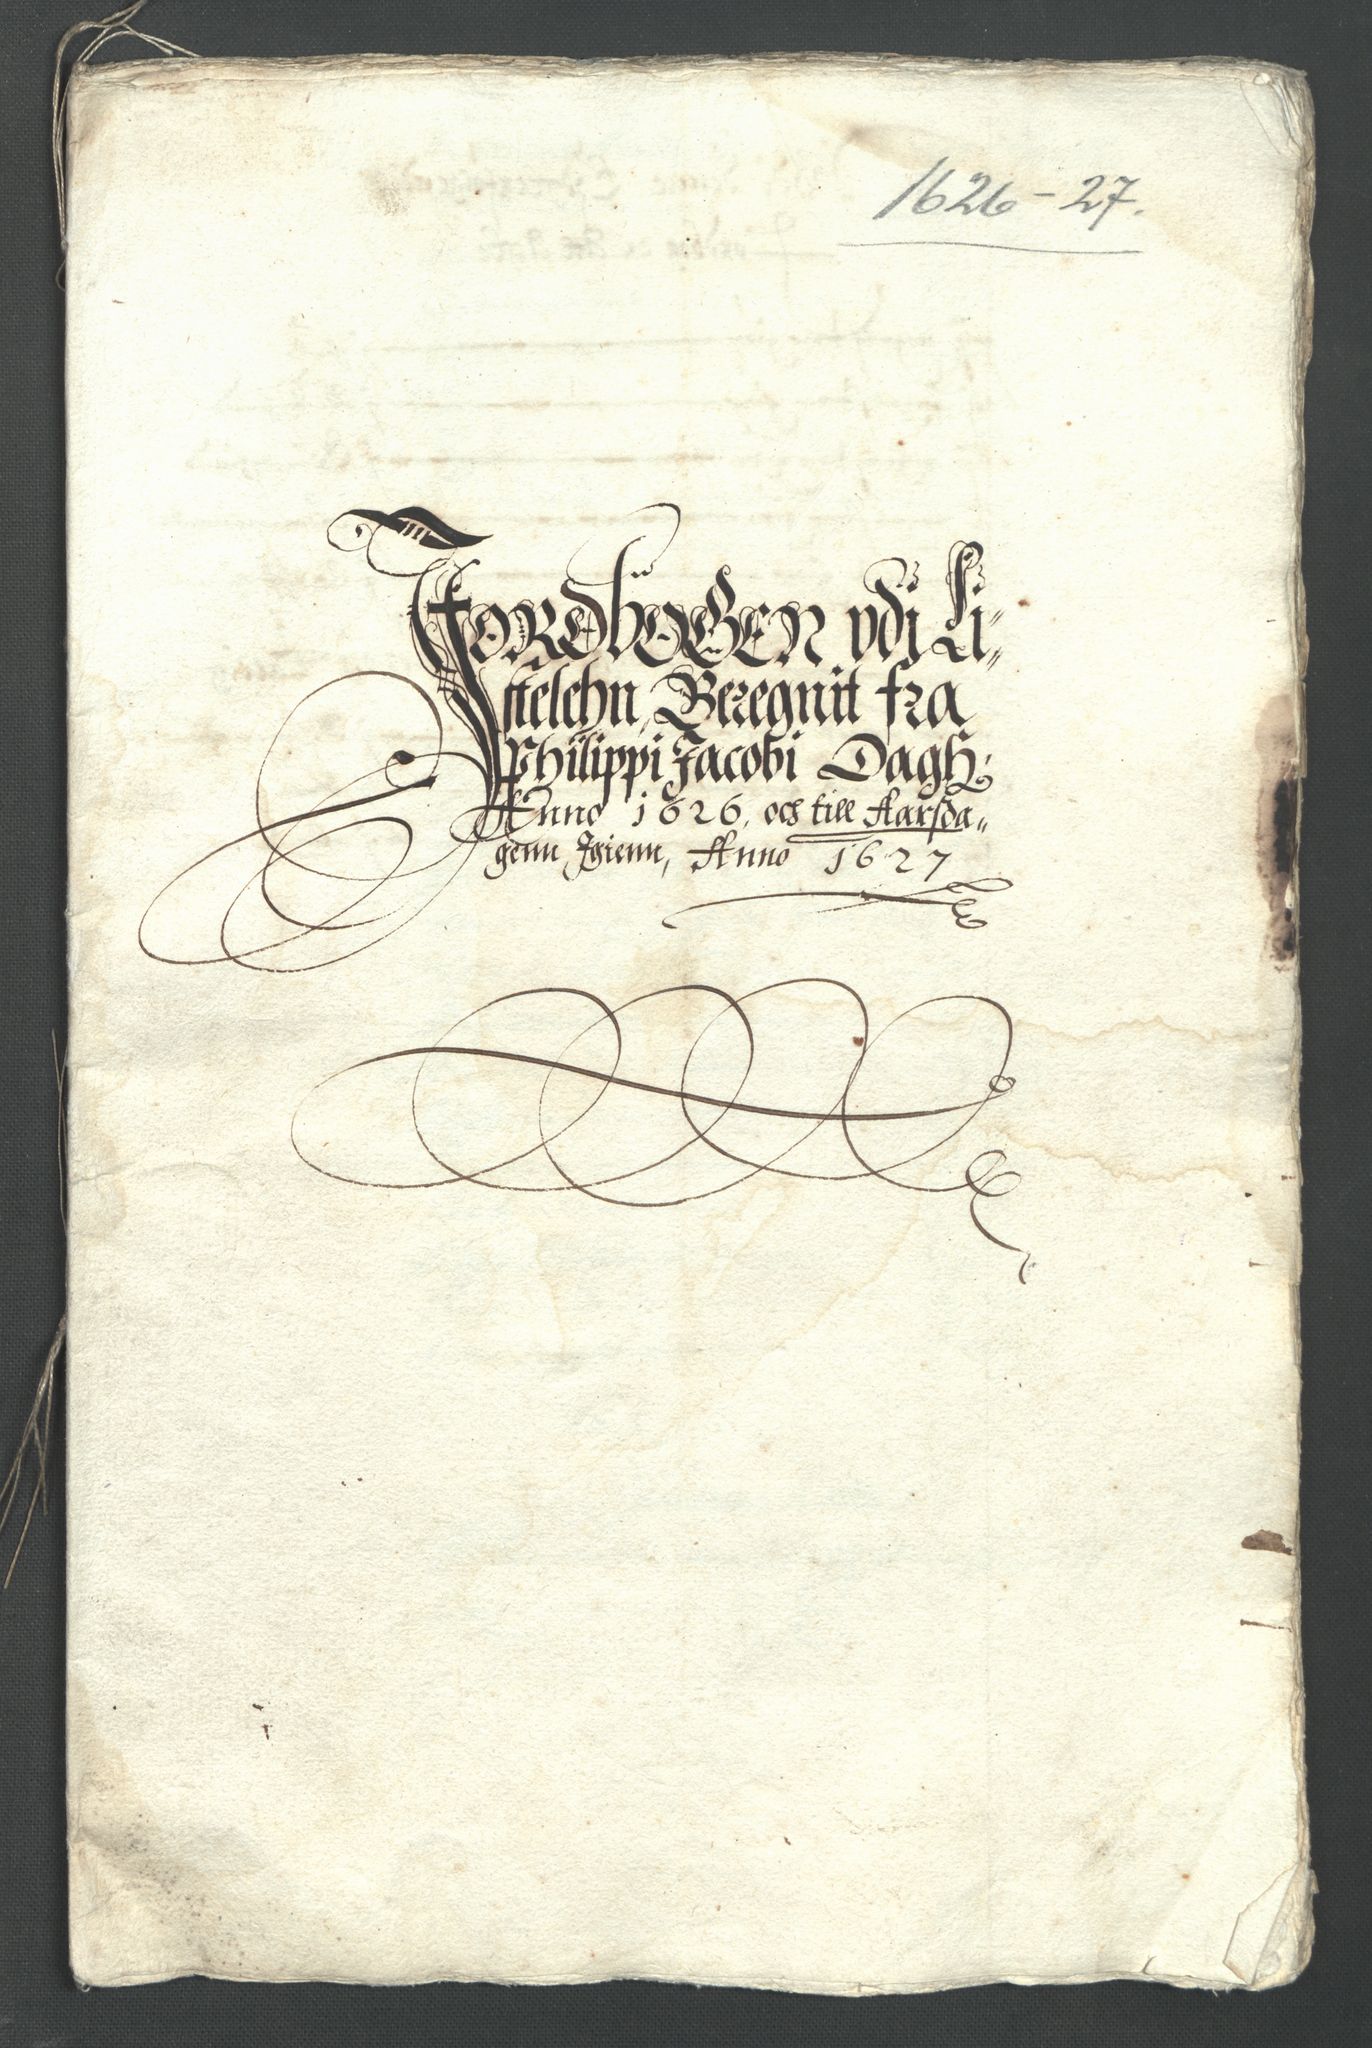 1626-27.
JORDBOGEN vdj Li=
stelehn, Beregnit fra
Philippi Jacobi Dagh
Anno 1626, och till Aarsda=
genn Igienn, Anno 1627